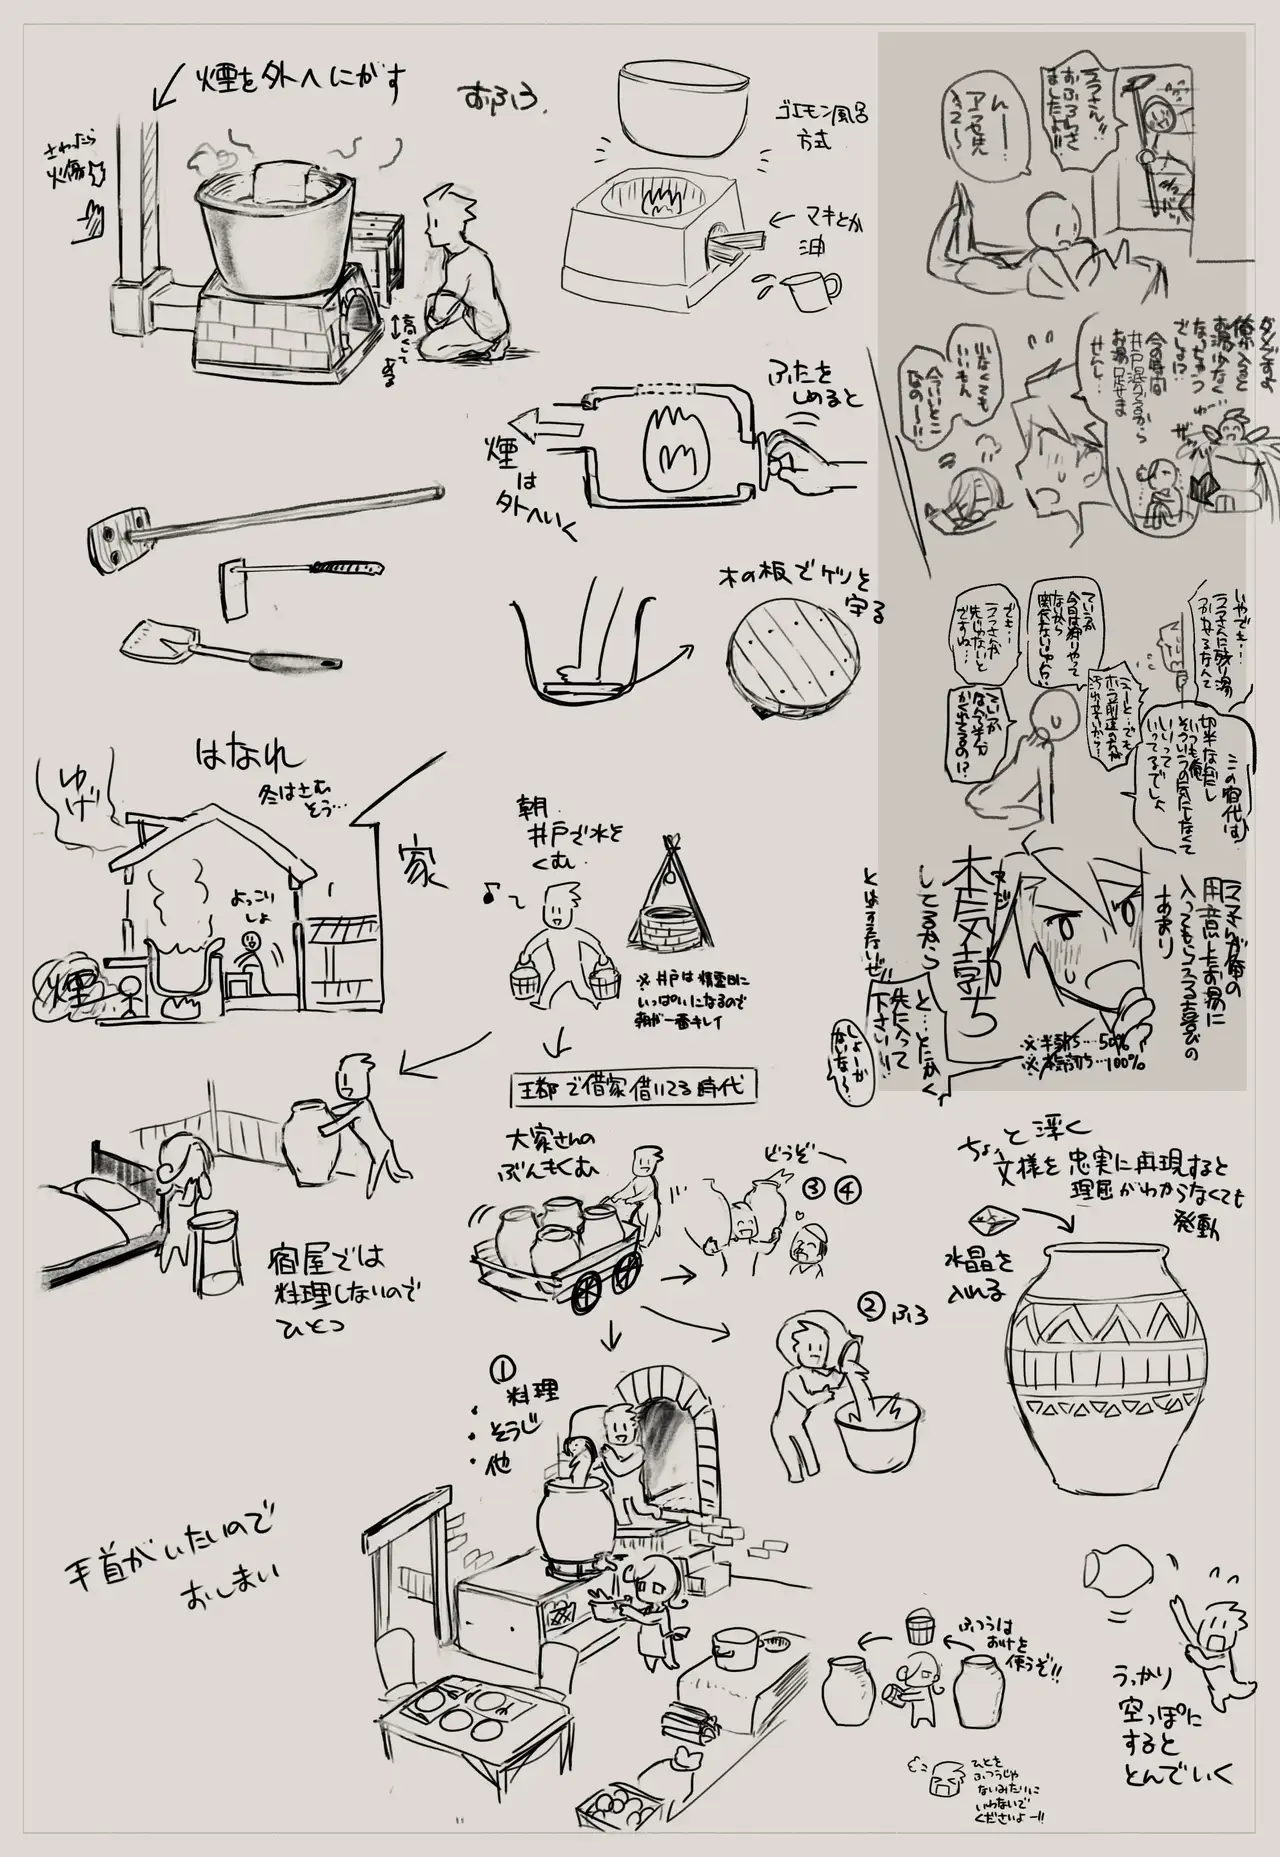 煙を外へにがす
さわったら
火傷
おふろ
高くして
ある
ゴエモン風呂
方式
マキとか
油
ふたを
しめると
煙
は
外へいく
木の板でケツを
守る
はなれ
冬はさむ
そう…
ゆげ
よっこい
しょ
煙
家
朝
井戸で水を
くむ
※井戸は精霊日に
いっぱいになるので
朝が一番キレイ
王都で借家借りてる時代
宿屋では
料理しないので
ひとつ
大家さんの
ぶんもくむ
どうぞ〜
③ ④
② ふろ
①
料理
・そうじ
・他
手首がいたいので
おしまい
ふつうは
おけを
使うぞ!!
ひとを
ふつうじゃ
ないみたいに
いわないで
くださいよー!!
ちょっと浮く
文様を忠実に再現すると
理屈がわからなくても
発動
水晶を
入れる
うっかり
空っぽに
すると
とんでいく
ララさん!!
おふろわき
ましたよ!!
んー…
ダメですよ
俺が入ると
お湯少なく
なっちゃう
でしょ!?
今の時間
井戸混んでるから
お湯足せま
せんし…
いなくても
いいもん
今いいとこ
なの〜!!
いやでも…
ララさんに残り湯
つかわせるなんて
ていうか
今日は狩りやって
ないから
関係ないじゃん!?
でも…
ララさんが
先じゃないと
ですね…
ていうか
なんで半分
かくれてるの!?
この宿代は
切半なんだし
いつも俺
そういうの気にしなくて
いいって
いってるでしょ
ララさんが俺の
用意したお湯に
入ってもらえる喜びの
あまり
本気勃ち
マジ
してるから
とはいえないぜ
と…とにかく
先に入って
下さい!!
しょーが
ないなら〜
※半勃ち…50%
※本気勃ち…100%